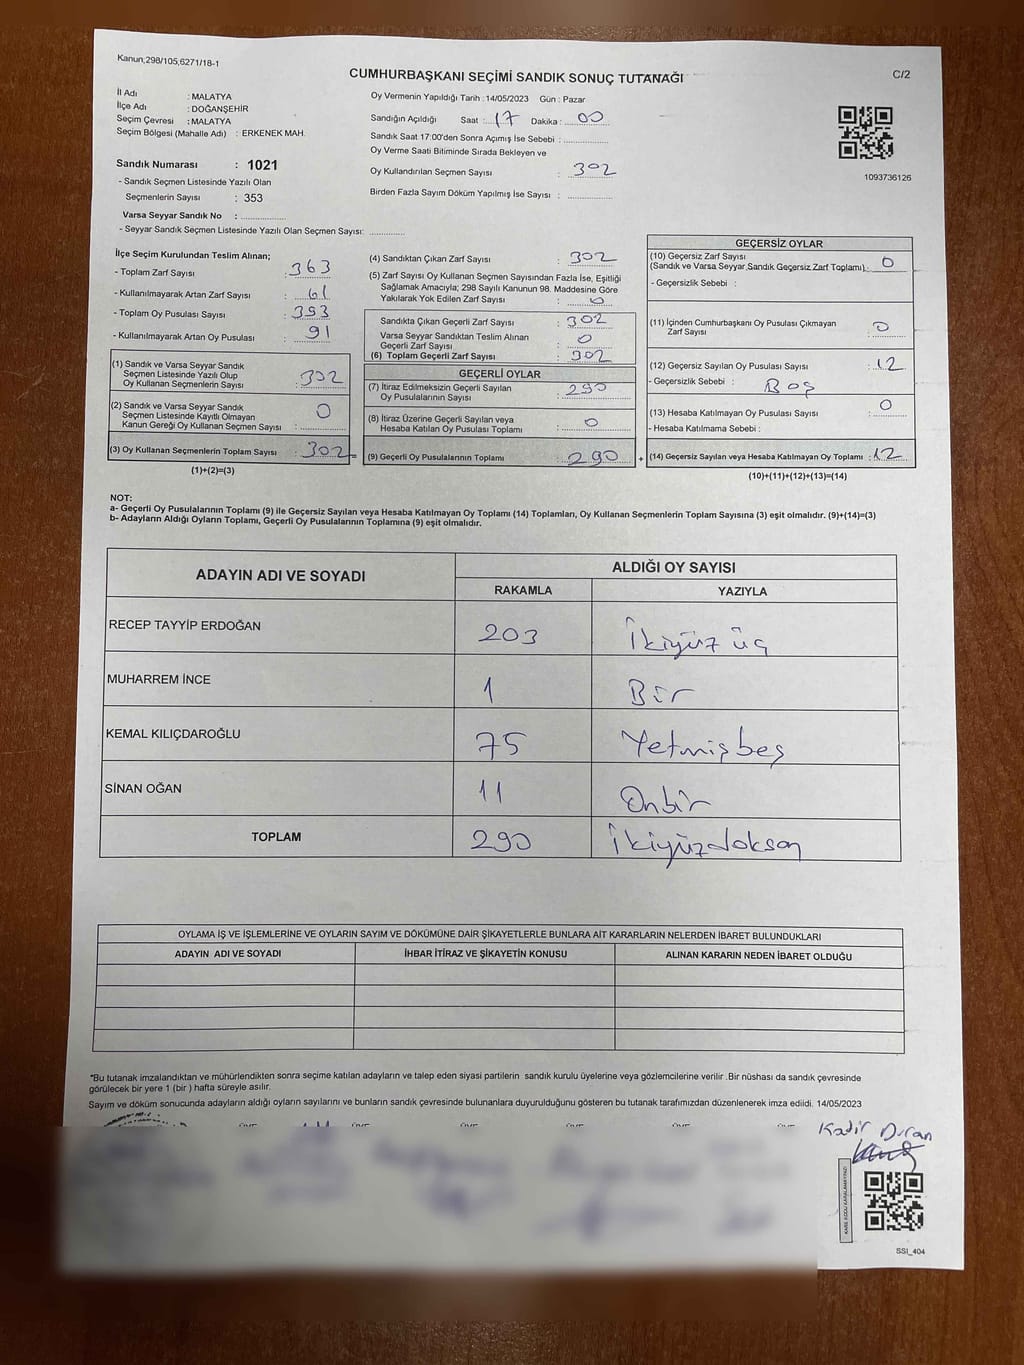 Kanun,298/105,6271/18-1
CUMHURBAŞKANI SEÇİMİ SANDIK SONUÇ TUTANAĞI
C/2
İl Adı : MALATYA
İlçe Adı : DOĞANŞEHİR
Seçim Çevresi : MALATYA
Seçim Bölgesi (Mahalle Adı) : ERKENEK MAH.
Sandık Numarası : 1021
- Sandık Seçmen Listesinde Yazılı Olan
Seçmenlerin Sayısı : 353
Varsa Seyyar Sandık No :
- Seyyar Sandık Seçmen Listesinde Yazılı Olan Seçmen Sayısı:
Oy Vermenin Yapıldığı Tarih : 14/05/2023 Gün : Pazar
Sandığın Açıldığı Saat : 17 Dakika : 00
Sandık Saat 17:00'den Sonra Açımış İse Sebebi :
Oy Verme Saati Bitiminde Sırada Bekleyen ve
Oy Kullandırılan Seçmen Sayısı : 302
Birden Fazla Sayım Döküm Yapılmış İse Sayısı :
1093736126
İlçe Seçim Kurulundan Teslim Alınan;
- Toplam Zarf Sayısı : 363
- Kullanılmayarak Artan Zarf Sayısı : 61
- Toplam Oy Pusulası Sayısı : 393
- Kullanılmayarak Artan Oy Pusulası : 91
(1) Sandık ve Varsa Seyyar Sandık
Seçmen Listesinde Yazılı Olup
Oy Kullanan Seçmenlerin Sayısı : 302
(2) Sandık ve Varsa Seyyar Sandık
Seçmen Listesinde Kayıtlı Olmayan
Kanun Gereği Oy Kullanan Seçmen Sayısı : 0
(3) Oy Kullanan Seçmenlerin Toplam Sayısı : 302 =
(1)+(2)=(3)
(4) Sandıktan Çıkan Zarf Sayısı : 302
(5) Zarf Sayısı Oy Kullanan Seçmen Sayısından Fazla İse, Eşitliği
Sağlamak Amacıyla; 298 Sayılı Kanunun 98. Maddesine Göre
Yakılarak Yok Edilen Zarf Sayısı : 0
Sandıkta Çıkan Geçerli Zarf Sayısı : 302
Varsa Seyyar Sandıktan Teslim Alınan
Geçerli Zarf Sayısı : 0
(6) Toplam Geçerli Zarf Sayısı : 302
GEÇERLİ OYLAR
(7) İtiraz Edilmeksizin Geçerli Sayılan
Oy Pusulalarının Sayısı : 290
(8) İtiraz Üzerine Geçerli Sayılan veya
Hesaba Katılan Oy Pusulası Toplamı : 0
(9) Geçerli Oy Pusulalarının Toplamı : 290 +
GEÇERSİZ OYLAR
(10) Geçersiz Zarf Sayısı
(Sandık ve Varsa Seyyar Sandık Geçersiz Zarf Toplamı) : 0
- Geçersizlik Sebebi :
(11) İçinden Cumhurbaşkanı Oy Pusulası Çıkmayan
Zarf Sayısı : 0
(12) Geçersiz Sayılan Oy Pusulası Sayısı : 12
- Geçersizlik Sebebi : Boş
(13) Hesaba Katılmayan Oy Pusulası Sayısı : 0
- Hesaba Katılmama Sebebi :
(14) Geçersiz Sayılan veya Hesaba Katılmayan Oy Toplamı : 12
(10)+(11)+(12)+(13)=(14)
NOT:
a- Geçerli Oy Pusulalarının Toplamı (9) ile Geçersiz Sayılan veya Hesaba Katılmayan Oy Toplamı (14) Toplamları, Oy Kullanan Seçmenlerin Toplam Sayısına (3) eşit olmalıdır. (9)+(14)=(3)
b- Adayların Aldığı Oyların Toplamı, Geçerli Oy Pusulalarının Toplamına (9) eşit olmalıdır.
ADAYIN ADI VE SOYADI ALDIĞI OY SAYISI
RAKAMLA YAZIYLA
RECEP TAYYİP ERDOĞAN 203 İkiyüz üç
MUHARREM İNCE 1 Bir
KEMAL KILIÇDAROĞLU 75 Yetmişbeş
SİNAN OĞAN 11 Onbir
TOPLAM 290 İkiyüzdoksan
OYLAMA İŞ VE İŞLEMLERİNE VE OYLARIN SAYIM VE DÖKÜMÜNE DAİR ŞİKAYETLERLE BUNLARA AİT KARARLARIN NELERDEN İBARET BULUNDUKLARI
ADAYIN ADI VE SOYADI İHBAR İTİRAZ VE ŞİKAYETİN KONUSU ALINAN KARARIN NEDEN İBARET OLDUĞU
*Bu tutanak imzalandıktan ve mühürlendikten sonra seçime katılan adayların ve talep eden siyasi partilerin sandık kurulu üyelerine veya gözlemcilerine verilir .Bir nüshası da sandık çevresinde
görülecek bir yere 1 (bir ) hafta süreyle asılır.
Sayım ve döküm sonucunda adayların aldığı oyların sayılarını ve bunların sandık çevresinde bulunanlara duyurulduğunu gösteren bu tutanak tarafımızdan düzenlenerek imza edildi. 14/05/2023
Kadir Diran
KARE KODU KARALAMAYINIZ!
SSİ_404